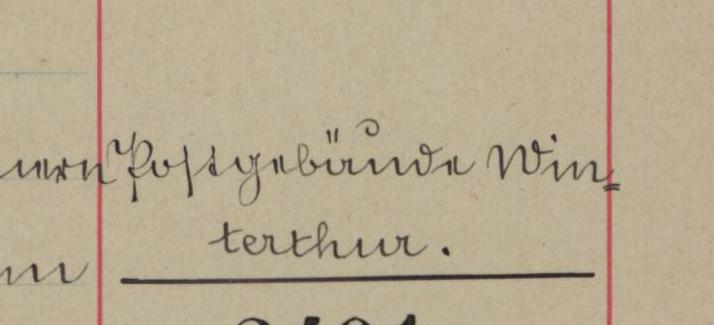 Postgebäude Win=
terthur.